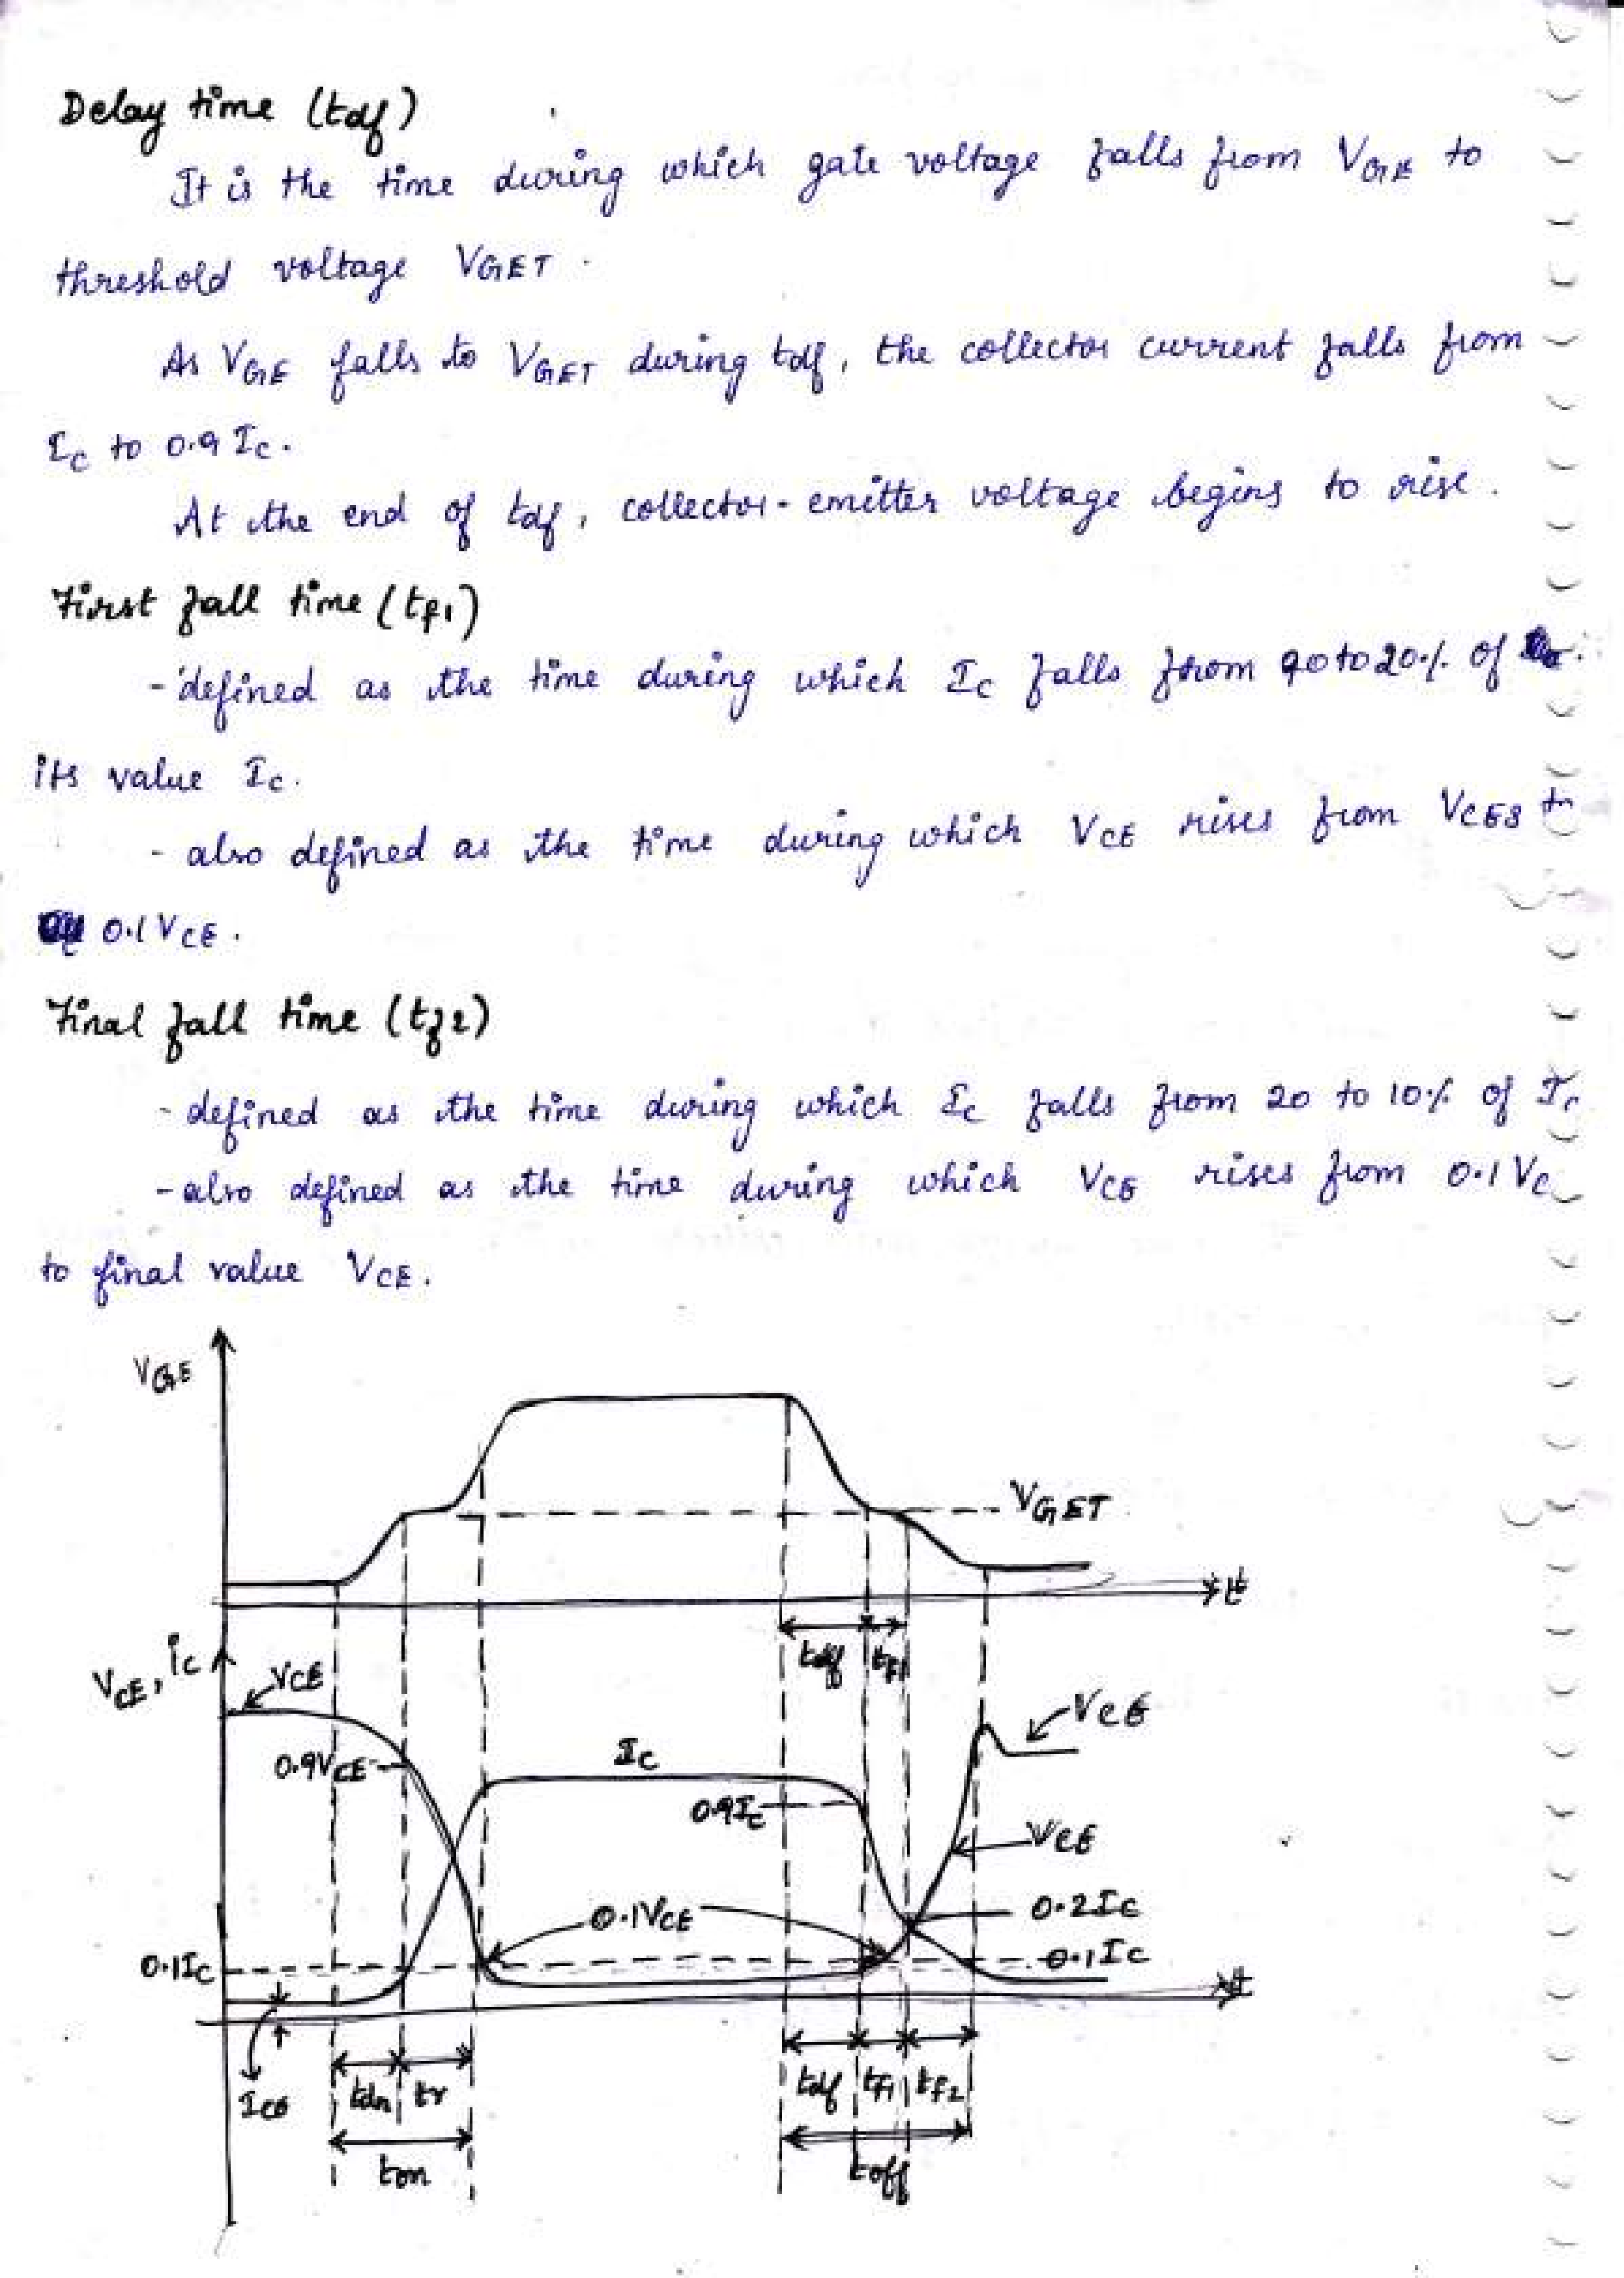 Delay time (tdf)
It is the time during which gate voltage falls from VGE to
threshold voltage VGET.
As VGE falls to VGET during tdf, the collector current falls from
Ic to 0.9 Ic.
At the end of tdf, collector-emitter voltage begins to rise.
First fall time (tf1)
- defined as the time during which Ic falls from 90 to 20% of
its value Ic.
- also defined as the time during which VCE rises from VCES to
0.1 VCE.
Final fall time (tf2)
- defined as the time during which Ic falls from 20 to 10% of Ic
- also defined as the time during which VCE rises from 0.1 VC
to final value VCE.
VGE
VGET
t
tdf tf1
VCE, ic
VCE
VCE
0.9VCE
Ic
0.9Ic
VCE
0.1VCE
0.2Ic
0.1Ic
0.1Ic
t
ICO
tdn tr
tdf tf1 tf2
ton
toff